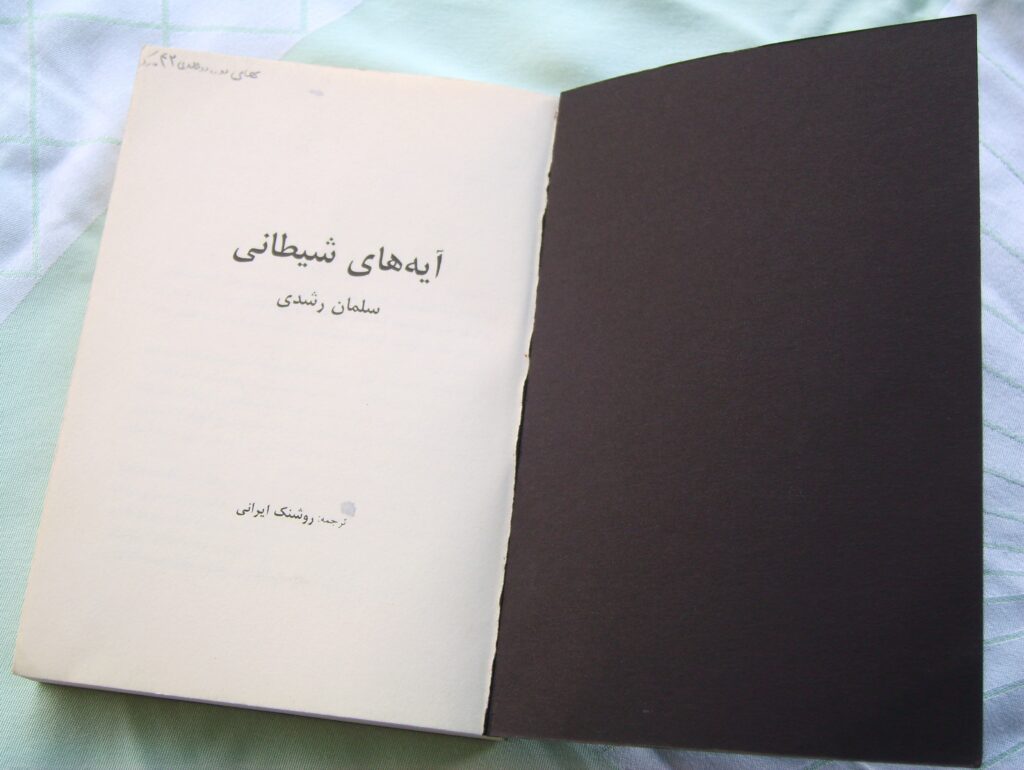 ۴۲
آیه‌های شیطانی
سلمان رشدی
ترجمه: روشنک ایرانی